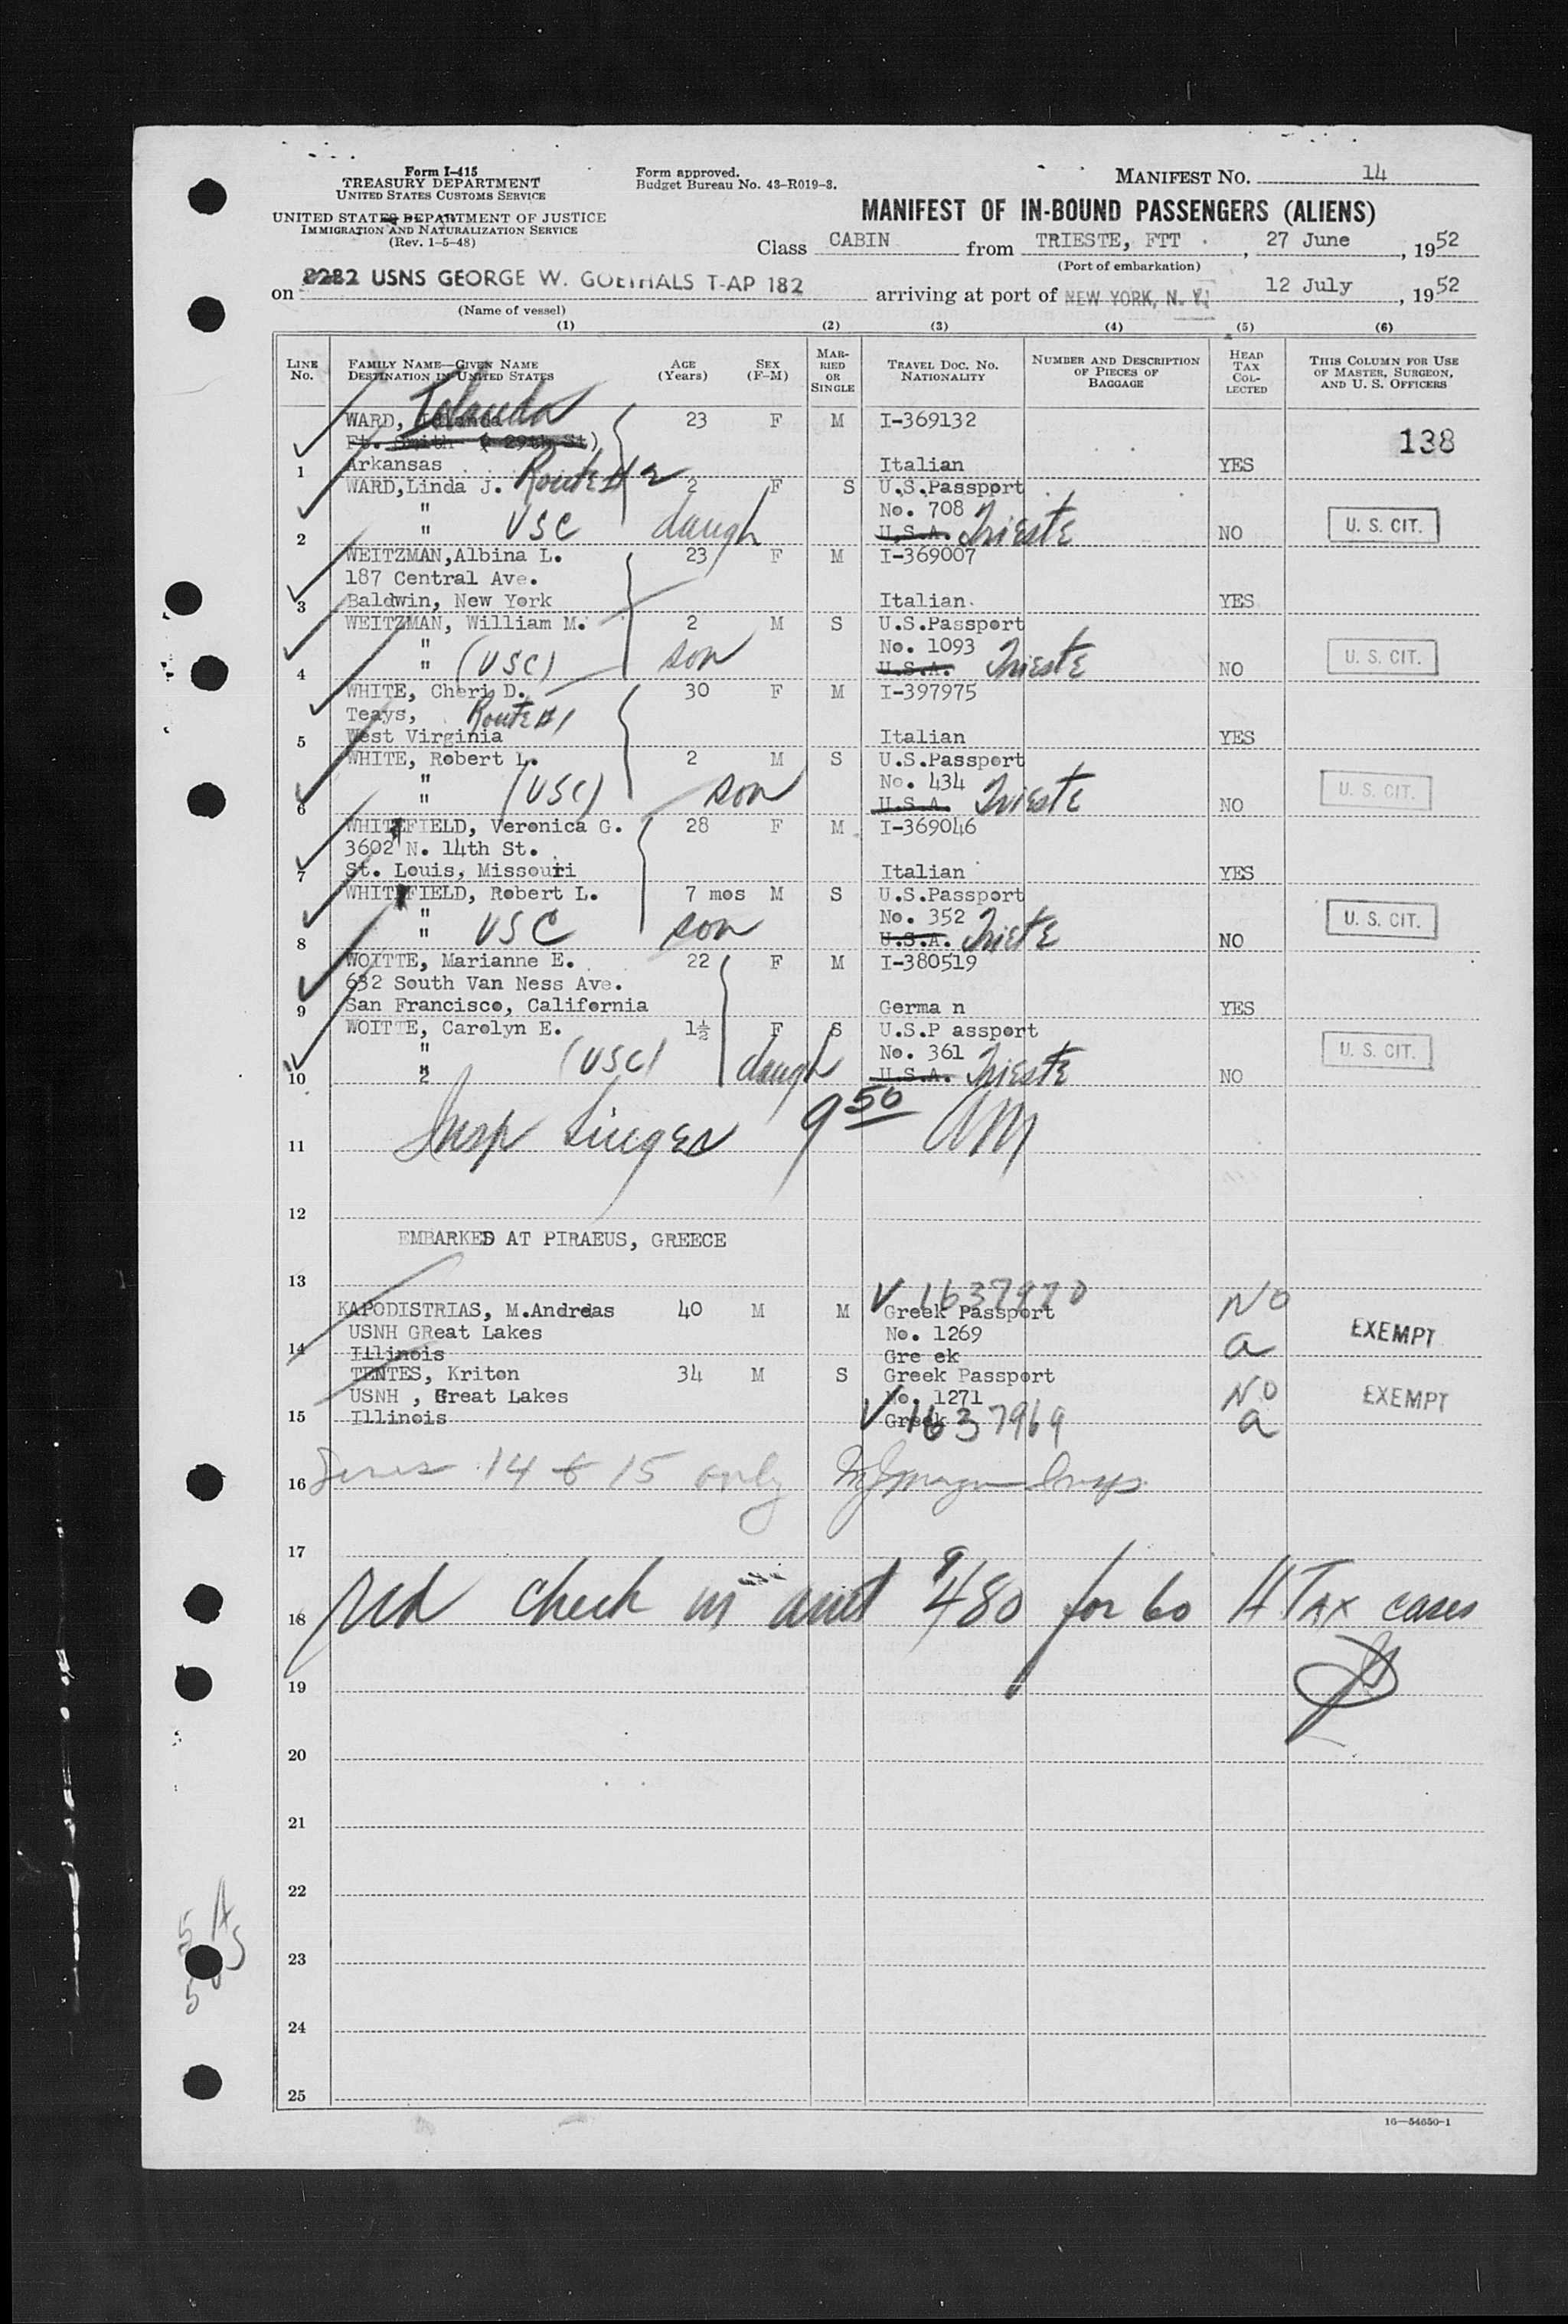 Form I-415
TREASURY DEPARTMENT
UNITED STATES CUSTOMS SERVICE
UNITED STATES DEPARTMENT OF JUSTICE
IMMIGRATION AND NATURALIZATION SERVICE
(Rev. 1-5-48)
Form approved.
Budget Bureau No. 43-R019-3.
MANIFEST NO. 14
MANIFEST OF IN-BOUND PASSENGERS (ALIENS)
Class CABIN from TRIESTE, FTT , 27 June , 1952
(Port of embarkation)
on 8282 USNS GEORGE W. GOETHALS T-AP 182 arriving at port of NEW YORK, N. Y. 12 July , 1952
(Name of vessel)
(1) (2) (3) (4) (5) (6)
LINE NO. FAMILY NAME—GIVEN NAME DESTINATION IN UNITED STATES AGE (Years) SEX (F-M) MARRIED OR SINGLE TRAVEL DOC. NO. NATIONALITY NUMBER AND DESCRIPTION OF PIECES OF BAGGAGE HEAD TAX COLLECTED THIS COLUMN FOR USE OF MASTER, SURGEON, AND U. S. OFFICERS
WARD, Iolanda 23 F M I-369132
Ft. Smith ( 29th St) 138
1 Arkansas Italian YES
WARD,Linda J. Route # 2 2 F S U.S.Passport
" No. 708
2 " USC daugh U.S.A. Trieste NO U. S. CIT.
WEITZMAN,Albina L. 23 F M I-369007
187 Central Ave.
3 Baldwin, New York Italian YES
WEITZMAN, William M. 2 M S U.S.Passport
" No. 1093
4 " (USC) son U.S.A. Trieste NO U. S. CIT.
WHITE, Cheri D. 30 F M I-397975
Teays, Route #1
5 West Virginia Italian YES
WHITE, Robert L. 2 M S U.S.Passport
" No. 434
6 " (USC) son U.S.A. Trieste NO U. S. CIT.
WHITFIELD, Veronica G. 28 F M I-369046
3602 N. 14th St.
7 St. Louis, Missouri Italian YES
WHITFIELD, Robert L. 7 mos M S U.S.Passport
" No. 352
8 " USC son U.S.A. Trieste NO U. S. CIT.
WOITTE, Marianne E. 22 F M I-380519
632 South Van Ness Ave.
9 San Francisco, California Germa n YES
WOITTE, Carolyn E. 1½ F S U.S.P assport
" No. 361
10 " (USC) daugh U.S.A. Trieste NO U. S. CIT.
11 Insp Singer 9 50 AM
12
EMBARKED AT PIRAEUS, GREECE
13 V 1637970
KAPODISTRIAS, M.Andreas 40 M M Greek Passport No
USNH GReat Lakes No. 1269 EXEMPT
14 Illinois Gre ek a
TENTES, Kriton 34 M S Greek Passport
USNH , Great Lakes No. 1271 No EXEMPT
15 Illinois Greek V 1637969 a
16 Lines 14 & 15 only Insp
17
18 red check in amt $480 for 60 H Tax cases
19
20
21
22
23
24
25
16—54650-1